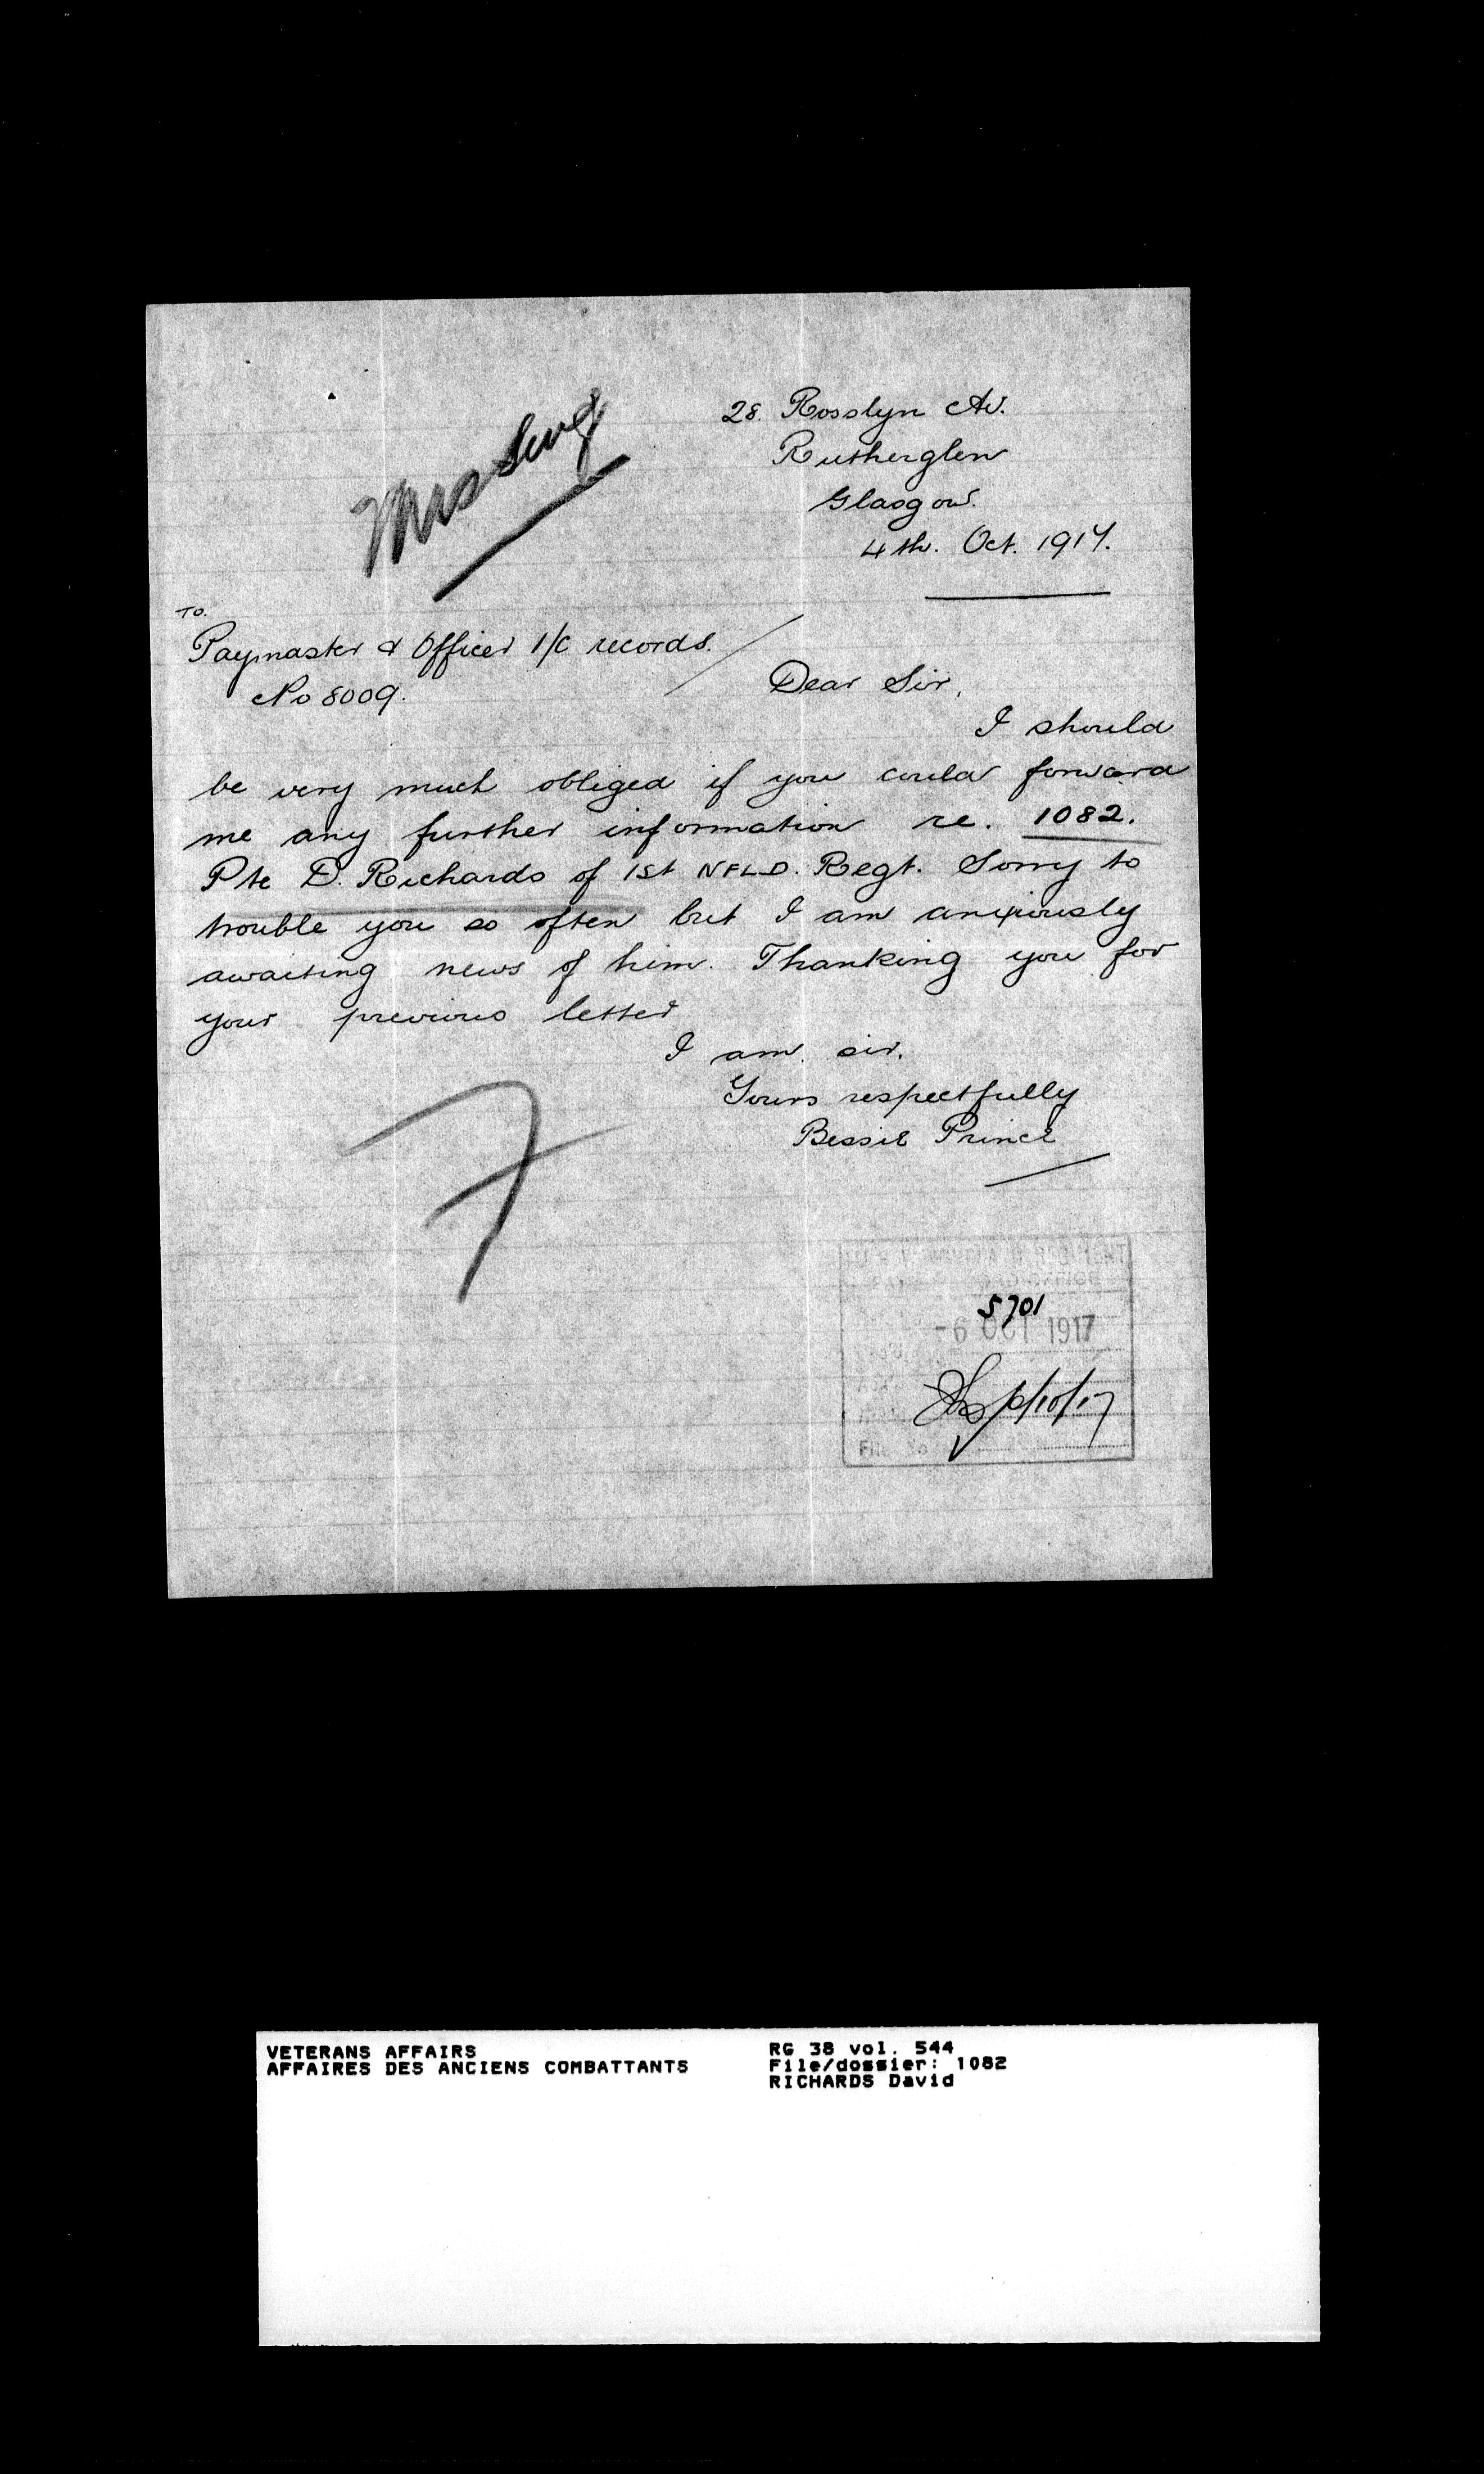 28. Rosslyn Av.
Rutherglen
Glasgow.
4th. Oct. 1917.
Missing
TO.
Paymaster & Officer I/C records.
No 8009.
Dear Sir,
I should
be very much obliged if you could forward
me any further information re. 1082.
Pte D. Richards of 1st NFLD. Regt. Sorry to
trouble you so often but I am anxiously
awaiting news of him. Thanking you for
your previous letter
I am sir.
Yours respectfully
Bessie Prince
5701
-6 OCT 1917
6/10/17
File No
VETERANS AFFAIRS RG 38 vol. 544
AFFAIRES DES ANCIENS COMBATTANTS File/dossier: 1082
RICHARDS David